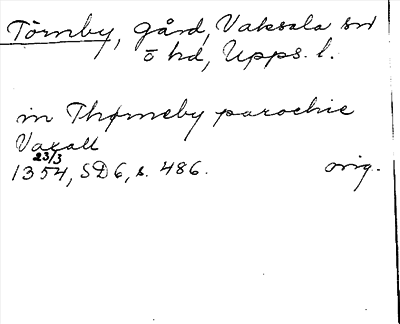 Törnby, gård, Vaksala sn
ö hd, Upps. l.
in Thørneby parochie
Vaxall
23/3
1354, SD6, s. 486. orig.